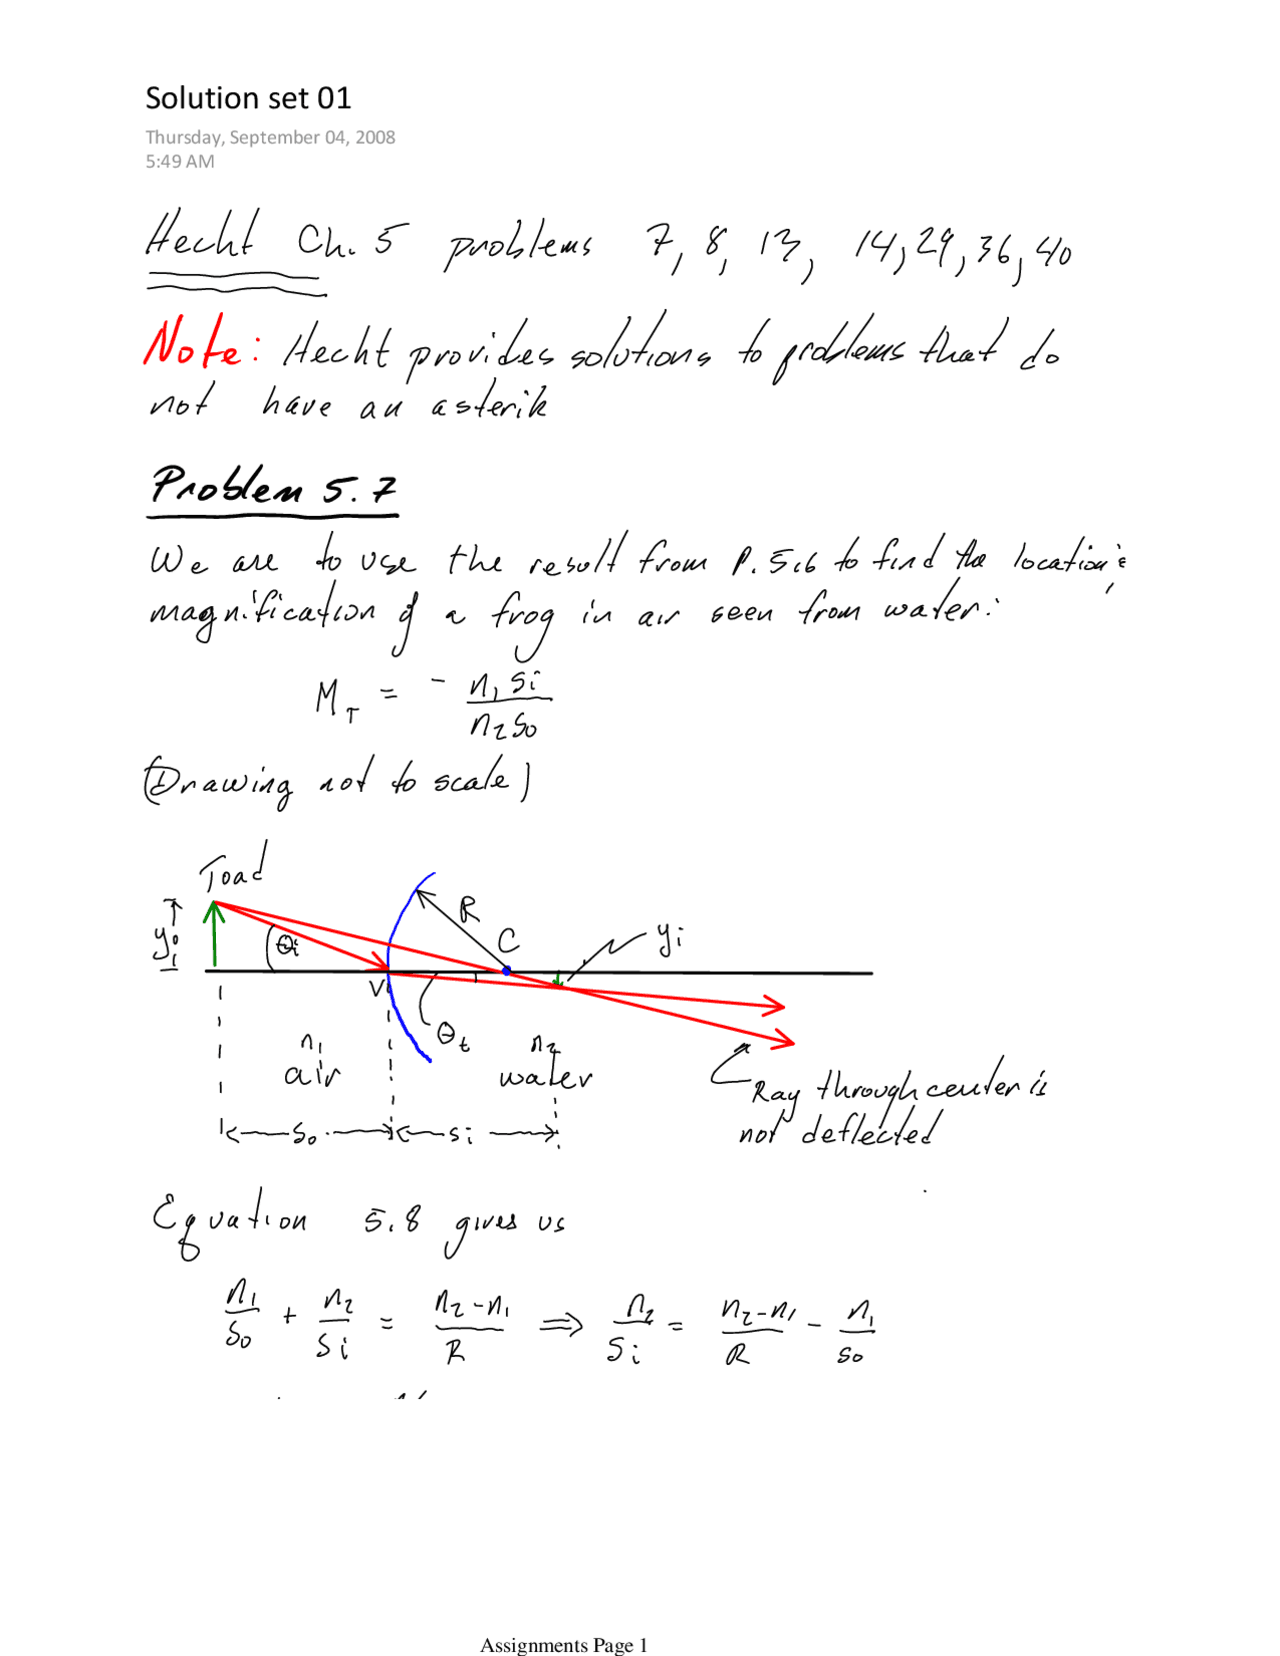 Solution set 01
Thursday, September 04, 2008
5:49 AM
Hecht Ch. 5 problems 7, 8, 13, 14, 29, 36, 40
Note: Hecht provides solutions to problems that do
not have an asterik
Problem 5.7
We are to use the result from P. 5.6 to find the location &
magnification of a frog in air seen from water:
M_T = - n₁ sᵢ / n₂ s₀
(Drawing not to scale)
Toad
R
y₀
θᵢ
C
yᵢ
V
θₜ
n₁
n₂
air
water
Ray through center is
not deflected
s₀
sᵢ
Equation 5.8 gives us
n₁/s₀ + n₂/sᵢ = (n₂-n₁)/R ⇒ n₂/sᵢ = (n₂-n₁)/R - n₁/s₀
Assignments Page 1